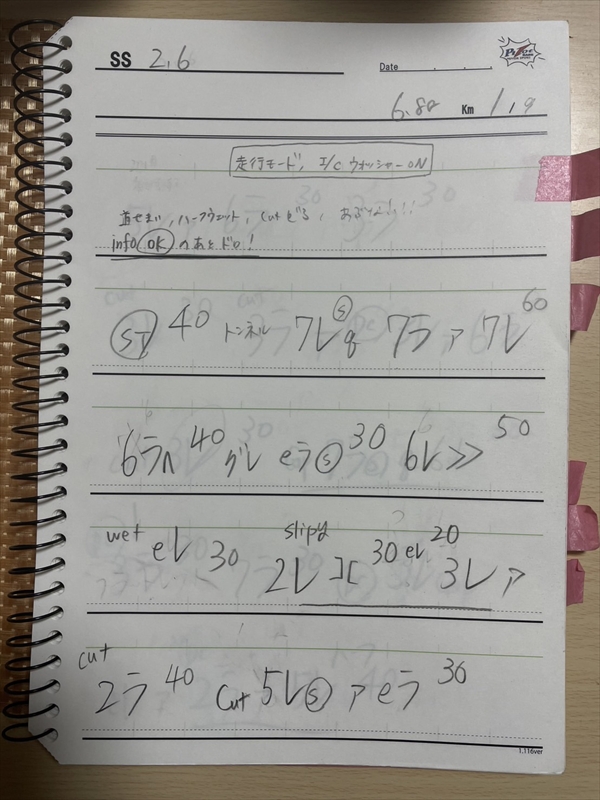 SS 2,6
Date
6.80 Km 1,9
走行モード, I/C ウォッシャーON
ハーフウェット, cut
info OK のあと ドロ!
ST 40 トンネル 7レ S 8 7ラ ァ 7レ 60
6ラ 40 eラ S 30 6レ >> 50
wet eレ 30 slipy 2レ 30 eレ 20 3レ ァ
cut 2ラ 40 cut 5レ S ァ eラ 30
1.116ver